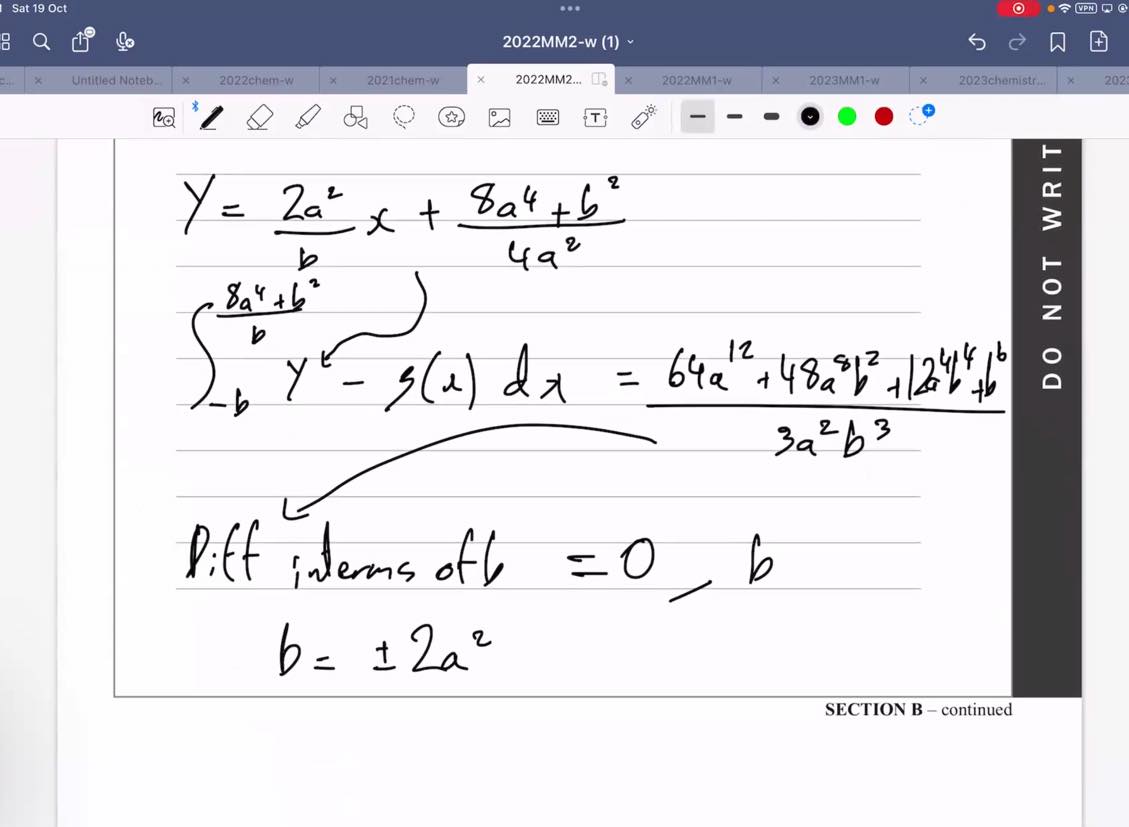 Sat 19 Oct
VPN
2022MM2-w (1)
c...
Untitled Noteb...
2022chem-w
2021chem-w
2022MM2...
2022MM1-w
2023MM1-w
2023chemistr...
202
Y = 2a²/b x + (8a⁴ + b²)/(4a²)
∫_{-b}^{(8a⁴ + b²)/b} Y - s(x) dx = (64a¹² + 48a⁸b² + 12a⁴b⁴ + b⁶)/(3a²b³)
Diff interms of b = 0, b
b = ± 2a²
DO NOT WRIT
SECTION B – continued